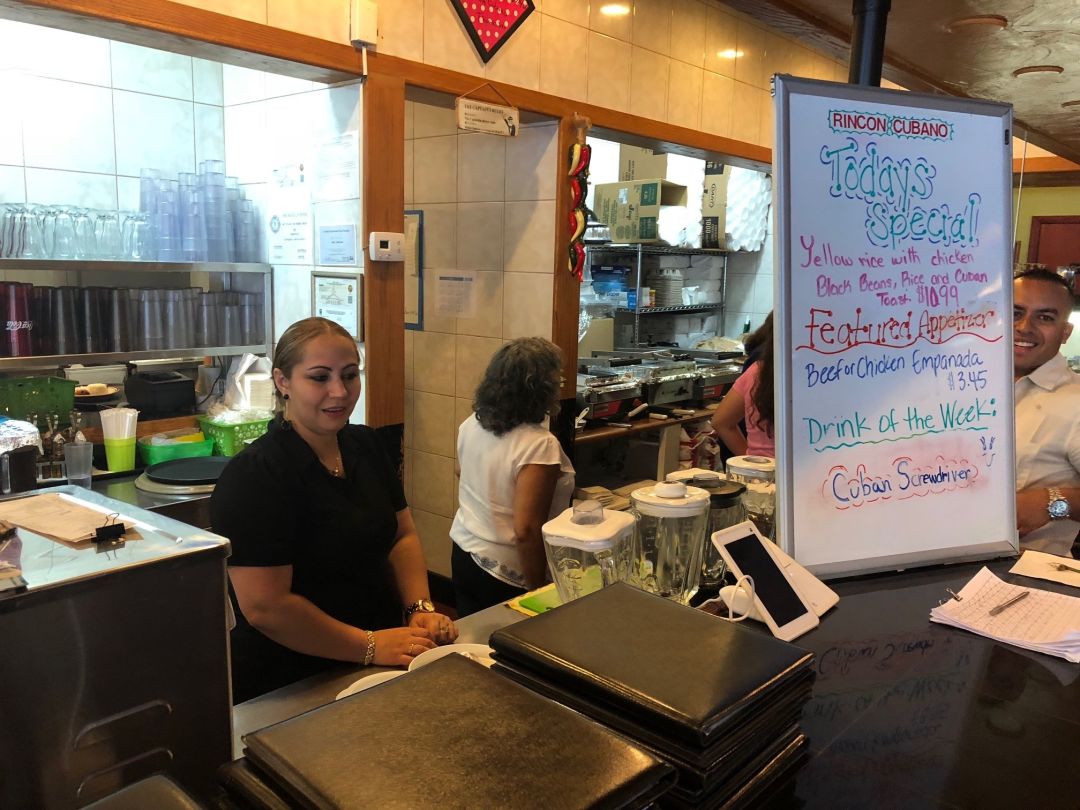 RINCON CUBANO
Todays
Special!
Yellow rice with chicken
Black Beans, Rice and Cuban
Toast. $10.99
Featured Appetizer
Beef or Chicken Empanada
$3.45
Drink of the Week:
Cuban Screwdriver